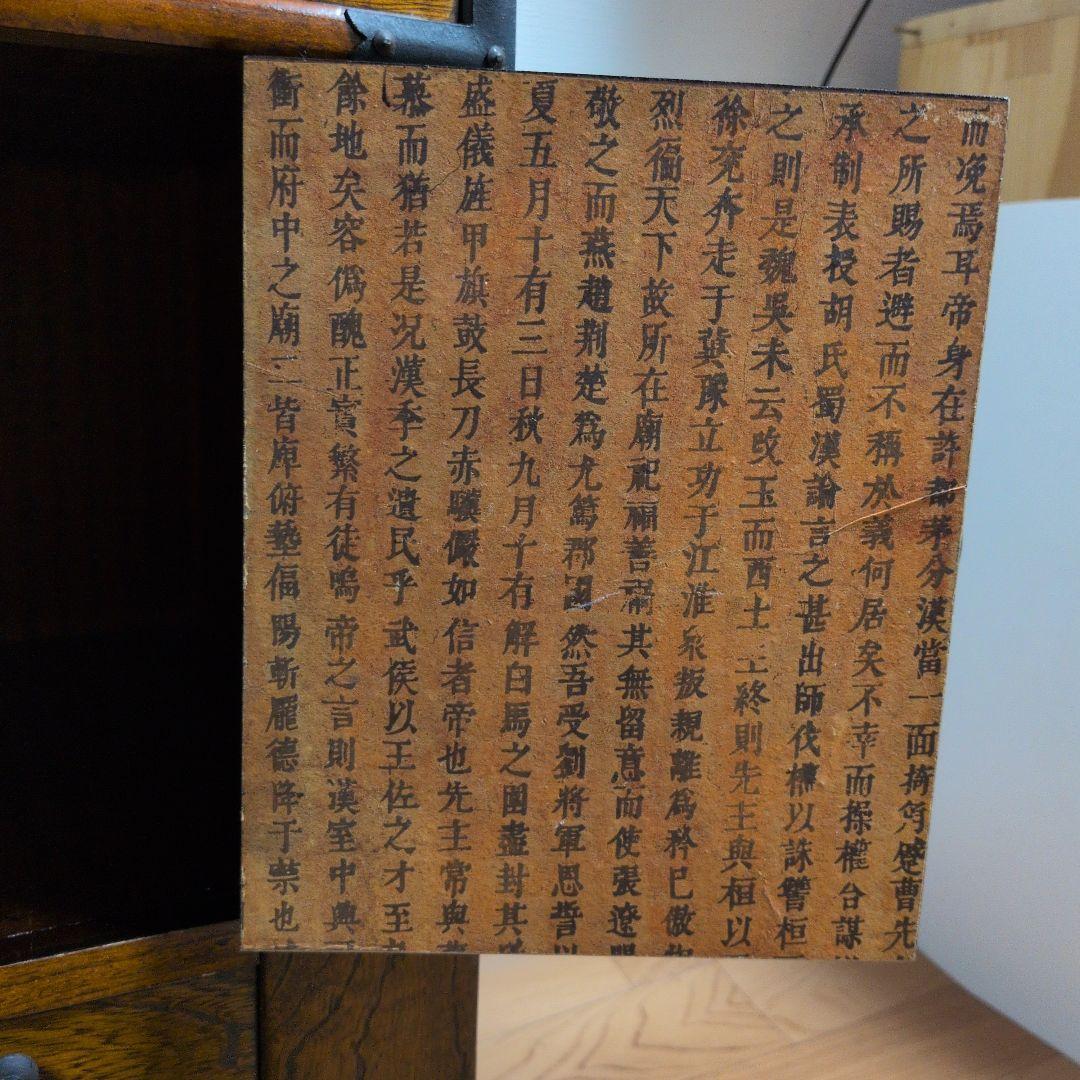 而凂焉耳帝身在許都茅分漢當一面掎角蹙曹先
之所賜者避而不稱於義何居矣不幸而操權台謀
承制表授胡氏蜀漢論言之甚出師伐樵以誅讐桓
之則是魏吳未云攺玉而西土三終則先王與桓以
徐兖奔走于冀豫立功于江淮衆叛親離為矜巳傲
烈徧天下故所在廟祀福善禍其無留意而使張遼
敬之而燕趙荆楚爲尤篤郡國然吾受劉將軍恩誓以
夏五月十有三日秋九月十有解白馬之圍盡封其
盛儀旌甲旗鼓長刀赤驥儼如信者帝也先主常與
慕而猶若是况漢季之遺民乎武侯以王佐之才至
餘地矣容僞醜正實繁有徒嗚帝之言則漢室中興
衝而府中之廟三皆庫俯墊偪陽斬龎德降于禁也